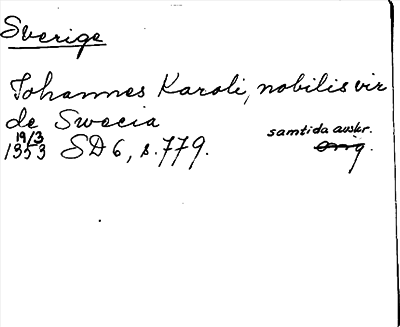 Sverige
Johannes Karoli, nobilis vir
de Swecia
19/3
1353 SD 6, s. 779.
samtida avskr.
orig.